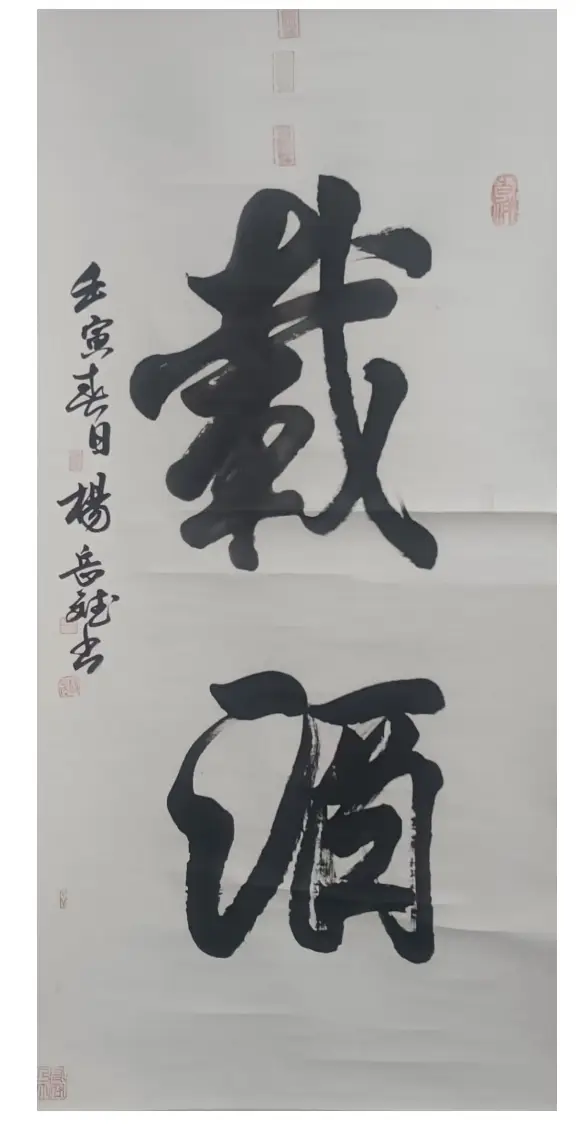 載酒
壬寅春日楊岳斌書